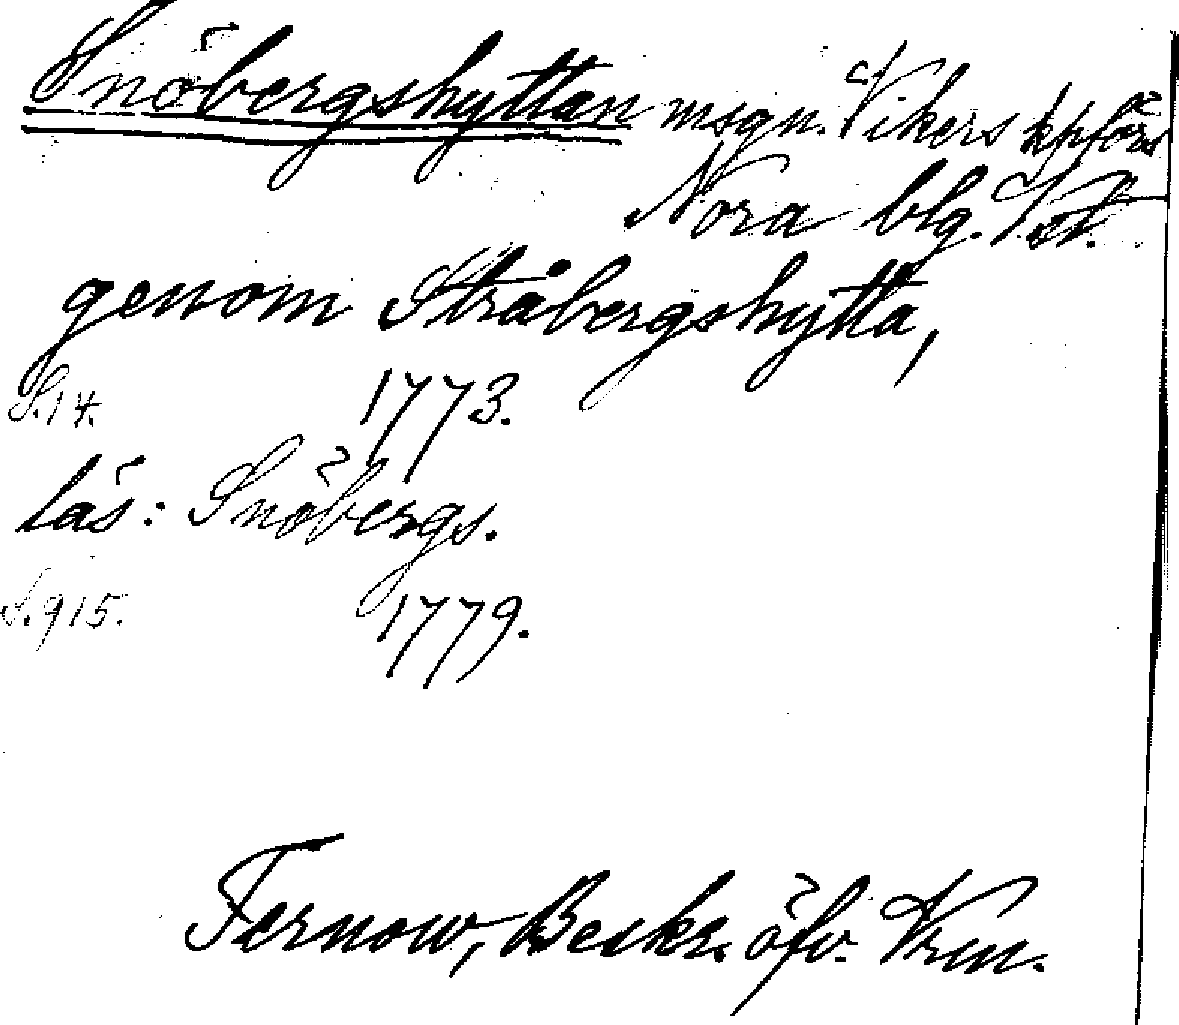 Snöbergshyttan msgn. Vikers kpförs
Nora blg. Vstm.
genom Stråbergshytta,
S. 14. 1773.
läs: Snöbergs.
S. 915. 1779.
Fernow, Beskr. öfv. Vrm.